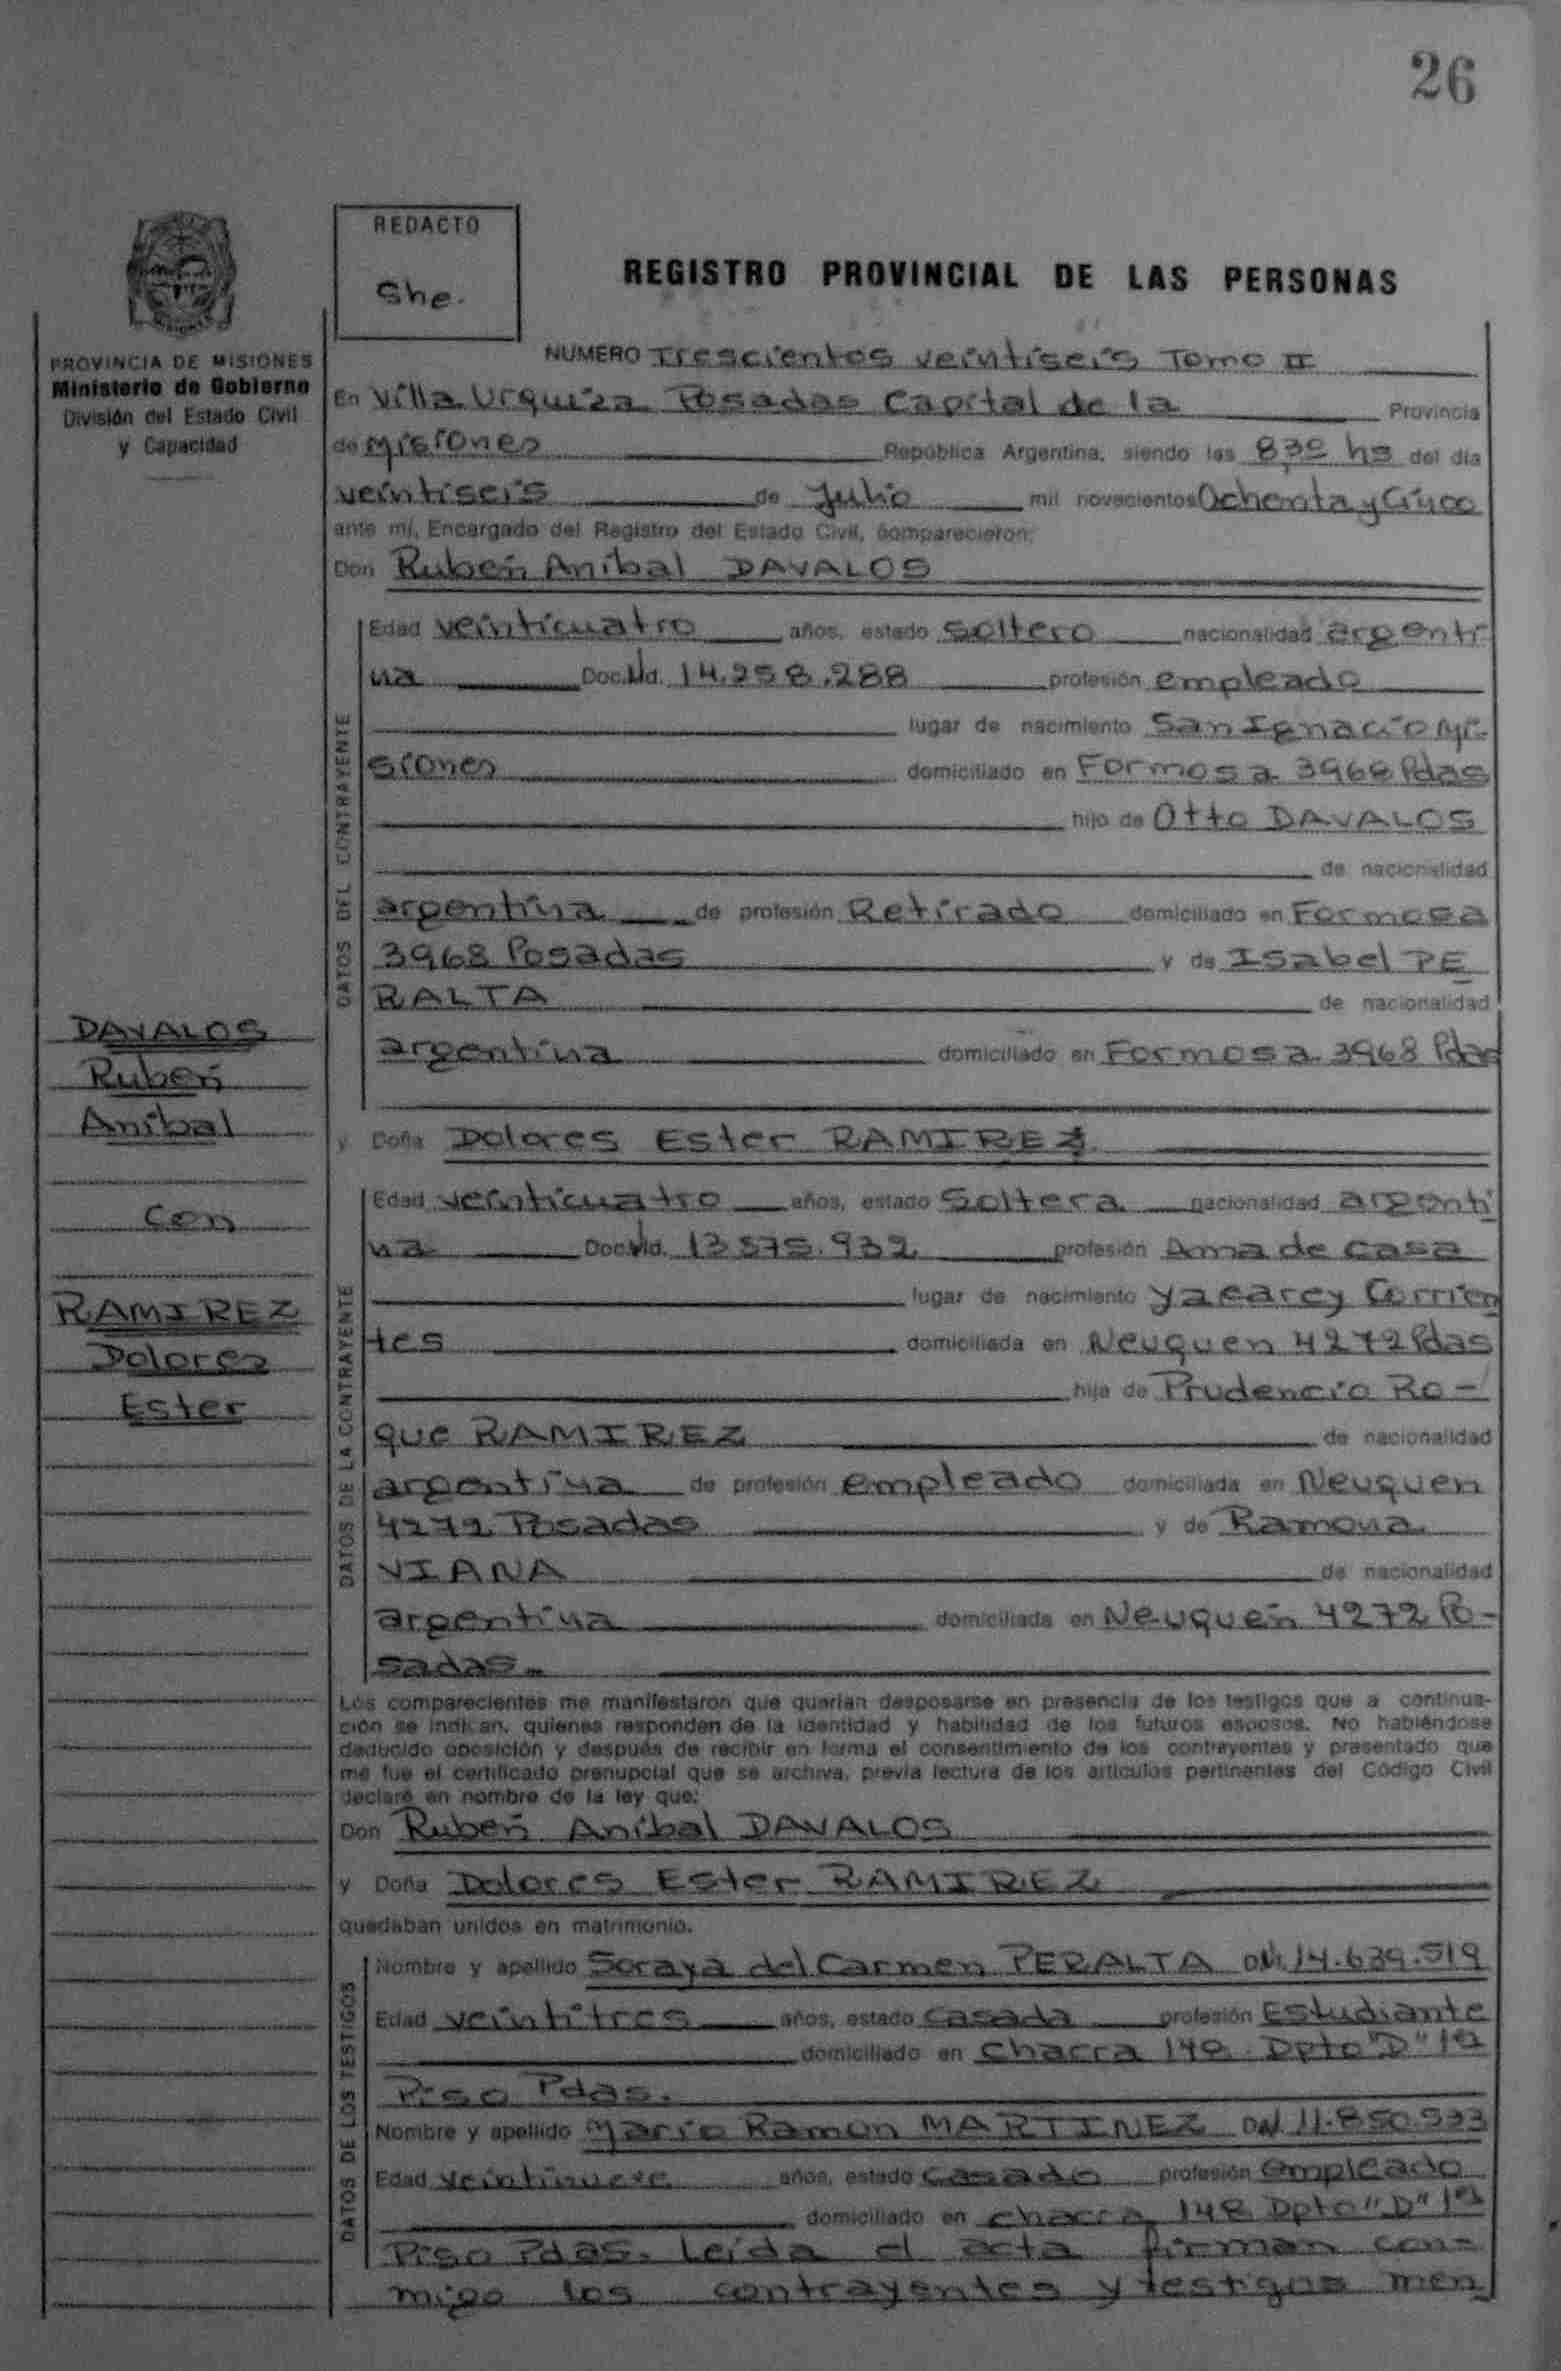 26
REDACTO
She.
REGISTRO PROVINCIAL DE LAS PERSONAS
PROVINCIA DE MISIONES
Ministerio de Gobierno
División del Estado Civil
y Capacidad
NUMERO Trescientos veintiseis Tomo II
En Villa Urquiza Posadas Capital de la Provincia
de Misiones República Argentina, siendo las 8,30 hs del día
veintiseis de Julio mil novecientos Ochenta y Cinco
ante mí, Encargado del Registro del Estado Civil, comparecieron:
Don Rubén Anibal DAVALOS
DATOS DEL CONTRAYENTE
Edad veinticuatro años, estado soltero nacionalidad argenti
na Doc. Nd. 14.258.288 profesión empleado
lugar de nacimiento San Ignacio Mi-
siones domiciliado en Formosa 3968 Pdas
hijo de Otto DAVALOS
de nacionalidad
argentina de profesión Retirado domiciliado en Formosa
3968 Posadas y de Isabel PE
RALTA de nacionalidad
argentina domiciliado en Formosa 3968 Pdas
DAVALOS
Rubén
Anibal
con
RAMIREZ
Dolores
Ester
y Doña Dolores Ester RAMIREZ
DATOS DE LA CONTRAYENTE
Edad veinticuatro años, estado Soltera nacionalidad argenti
na Doc. Nd. 13.575.932 profesión Ama de casa
lugar de nacimiento Yacarey Corrien
tes domiciliada en Neuquen 4272 Pdas
hija de Prudencio Ro-
que RAMIREZ de nacionalidad
argentina de profesión empleado domiciliada en Neuquen
4272 Posadas y de Ramona
VIANA de nacionalidad
argentina domiciliada en Neuquén 4272 Po-
sadas.
Los comparecientes me manifestaron que querían desposarse en presencia de los testigos que a continua-
ción se indican, quienes responden de la identidad y habilidad de los futuros esposos. No habiéndose
deducido oposición y después de recibir en forma el consentimiento de los contrayentes y presentado que
me fue el certificado prenupcial que se archiva, previa lectura de los artículos pertinentes del Código Civil
declaré en nombre de la ley que:
Don Rubén Anibal DAVALOS
y Doña Dolores Ester RAMIREZ
quedaban unidos en matrimonio.
DATOS DE LOS TESTIGOS
Nombre y apellido Soraya del Carmen PERALTA DNI. 14.639.519
Edad veintitres años, estado casada profesión Estudiante
domiciliado en chacra 148 Dpto "D" 1º
Piso Pdas.
Nombre y apellido Mario Ramon MARTINEZ DNI 11.850.533
Edad veintinueve años, estado casado profesión empleado
domiciliado en chacra 148 Dpto "D" 1º
Piso Pdas. Leída el acta firman con-
migo los contrayentes y testigos men